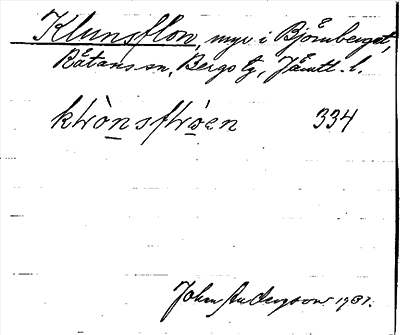 Klunsflon, myr i Björnberget,
Råtans sn, Bergs tg, Jämtl. l.
334
John Anderson 1937.